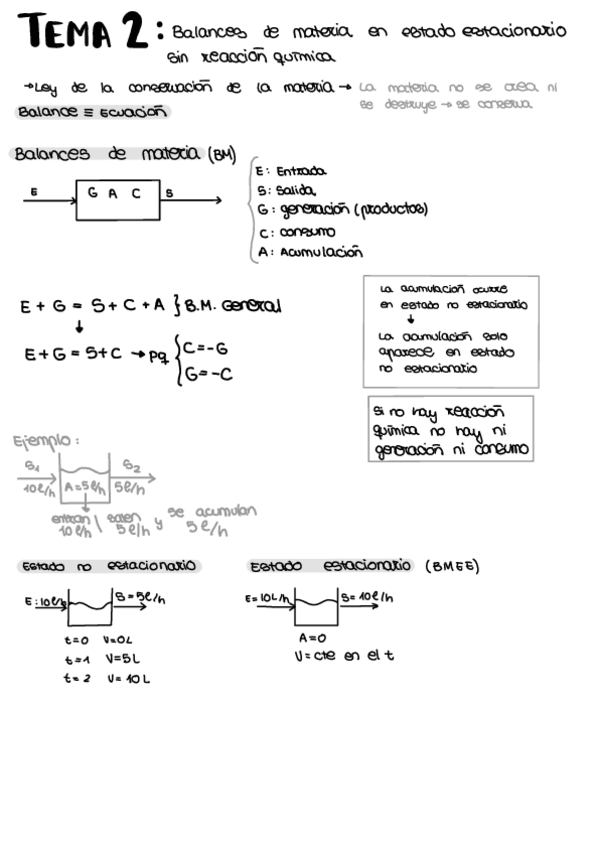 TEMA 2: Balances de materia en estado estacionario
sin reacción química
→Ley de la conservación de la materia → La materia no se crea ni
se destruye → se conserva
Balance ≡ Ecuación
Balances de materia (BM)
E
G A C
S
E: Entrada
S: Salida
G: generación (productos)
C: consumo
A: Acumulación
E + G = S + C + A } B.M. General
↓
E + G = S + C → pq { C = -G
G = -C
La acumulación ocurre
en estado no estacionario
↓
La acumulación solo
aparece en estado
no estacionario
Si no hay reacción
química no hay ni
generación ni consumo
Ejemplo:
S1
10l/h
A=5l/h
S2
5l/h
entran 10l/h \ salen 5l/h y se acumulan 5l/h
Estado no estacionario
E: 10l/h
S = 5l/h
t=0 V=0L
t=1 V=5L
t=2 V=10L
Estado estacionario (BMEE)
E=10L/h
S=10l/h
A=0
V=cte en el t